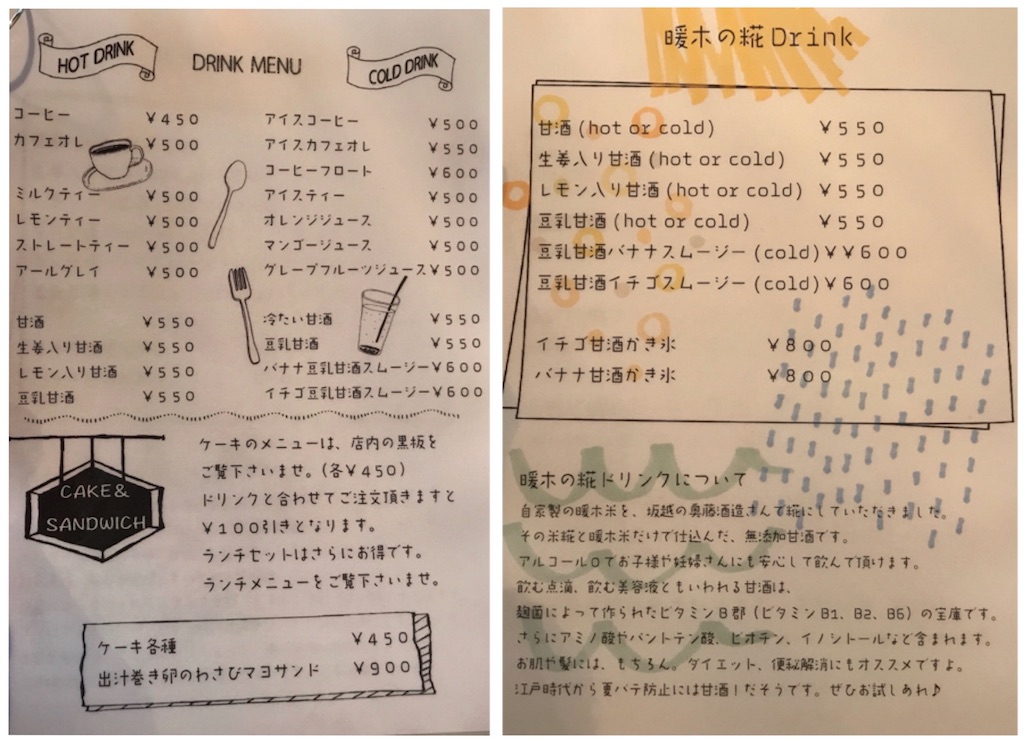 HOT DRINK
DRINK MENU
COLD DRINK
コーヒー ￥450
カフェオレ ￥500
ミルクティー ￥500
レモンティー ￥500
ストレートティー ￥500
アールグレイ ￥500
甘酒 ￥550
生姜入り甘酒 ￥550
レモン入り甘酒 ￥550
豆乳甘酒 ￥550
アイスコーヒー ￥500
アイスカフェオレ ￥550
コーヒーフロート ￥600
アイスティー ￥500
オレンジジュース ￥500
マンゴージュース ￥500
グレープフルーツジュース￥500
冷たい甘酒 ￥550
豆乳甘酒 ￥550
バナナ豆乳甘酒スムージー￥600
イチゴ豆乳甘酒スムージー￥600
CAKE&
SANDWICH
ケーキのメニューは、店内の黒板を
ご覧下さいませ。(各￥450)
ドリンクと合わせてご注文頂きますと
￥100引きとなります。
ランチセットはさらにお得です。
ランチメニューをご覧下さいませ。
ケーキ各種 ￥450
出汁巻き卵のわさびマヨサンド ￥900
暖木の糀Drink
甘酒(hot or cold) ￥550
生姜入り甘酒(hot or cold) ￥550
レモン入り甘酒(hot or cold) ￥550
豆乳甘酒(hot or cold) ￥550
豆乳甘酒バナナスムージー(cold)￥￥600
豆乳甘酒イチゴスムージー(cold)￥600
イチゴ甘酒かき氷 ￥800
バナナ甘酒かき氷 ￥800
暖木の糀ドリンクについて
自家製の暖木米を、坂越の奥藤酒造さんで糀にしていただきました。
その米糀と暖木米だけで仕込んだ、無添加甘酒です。
アルコール0でお子様や妊婦さんにも安心して飲んで頂けます。
飲む点滴、飲む美容液ともいわれる甘酒は、
麹菌によって作られたビタミンB郡(ビタミンB1、B2、B6)の宝庫です。
さらにアミノ酸やパントテン酸、ビオチン、イノシトールなど含まれます。
お肌や髪には、もちろん。ダイエット、便秘解消にもオススメですよ。
江戸時代から夏バテ防止には甘酒！だそうです。ぜひお試しあれ♪